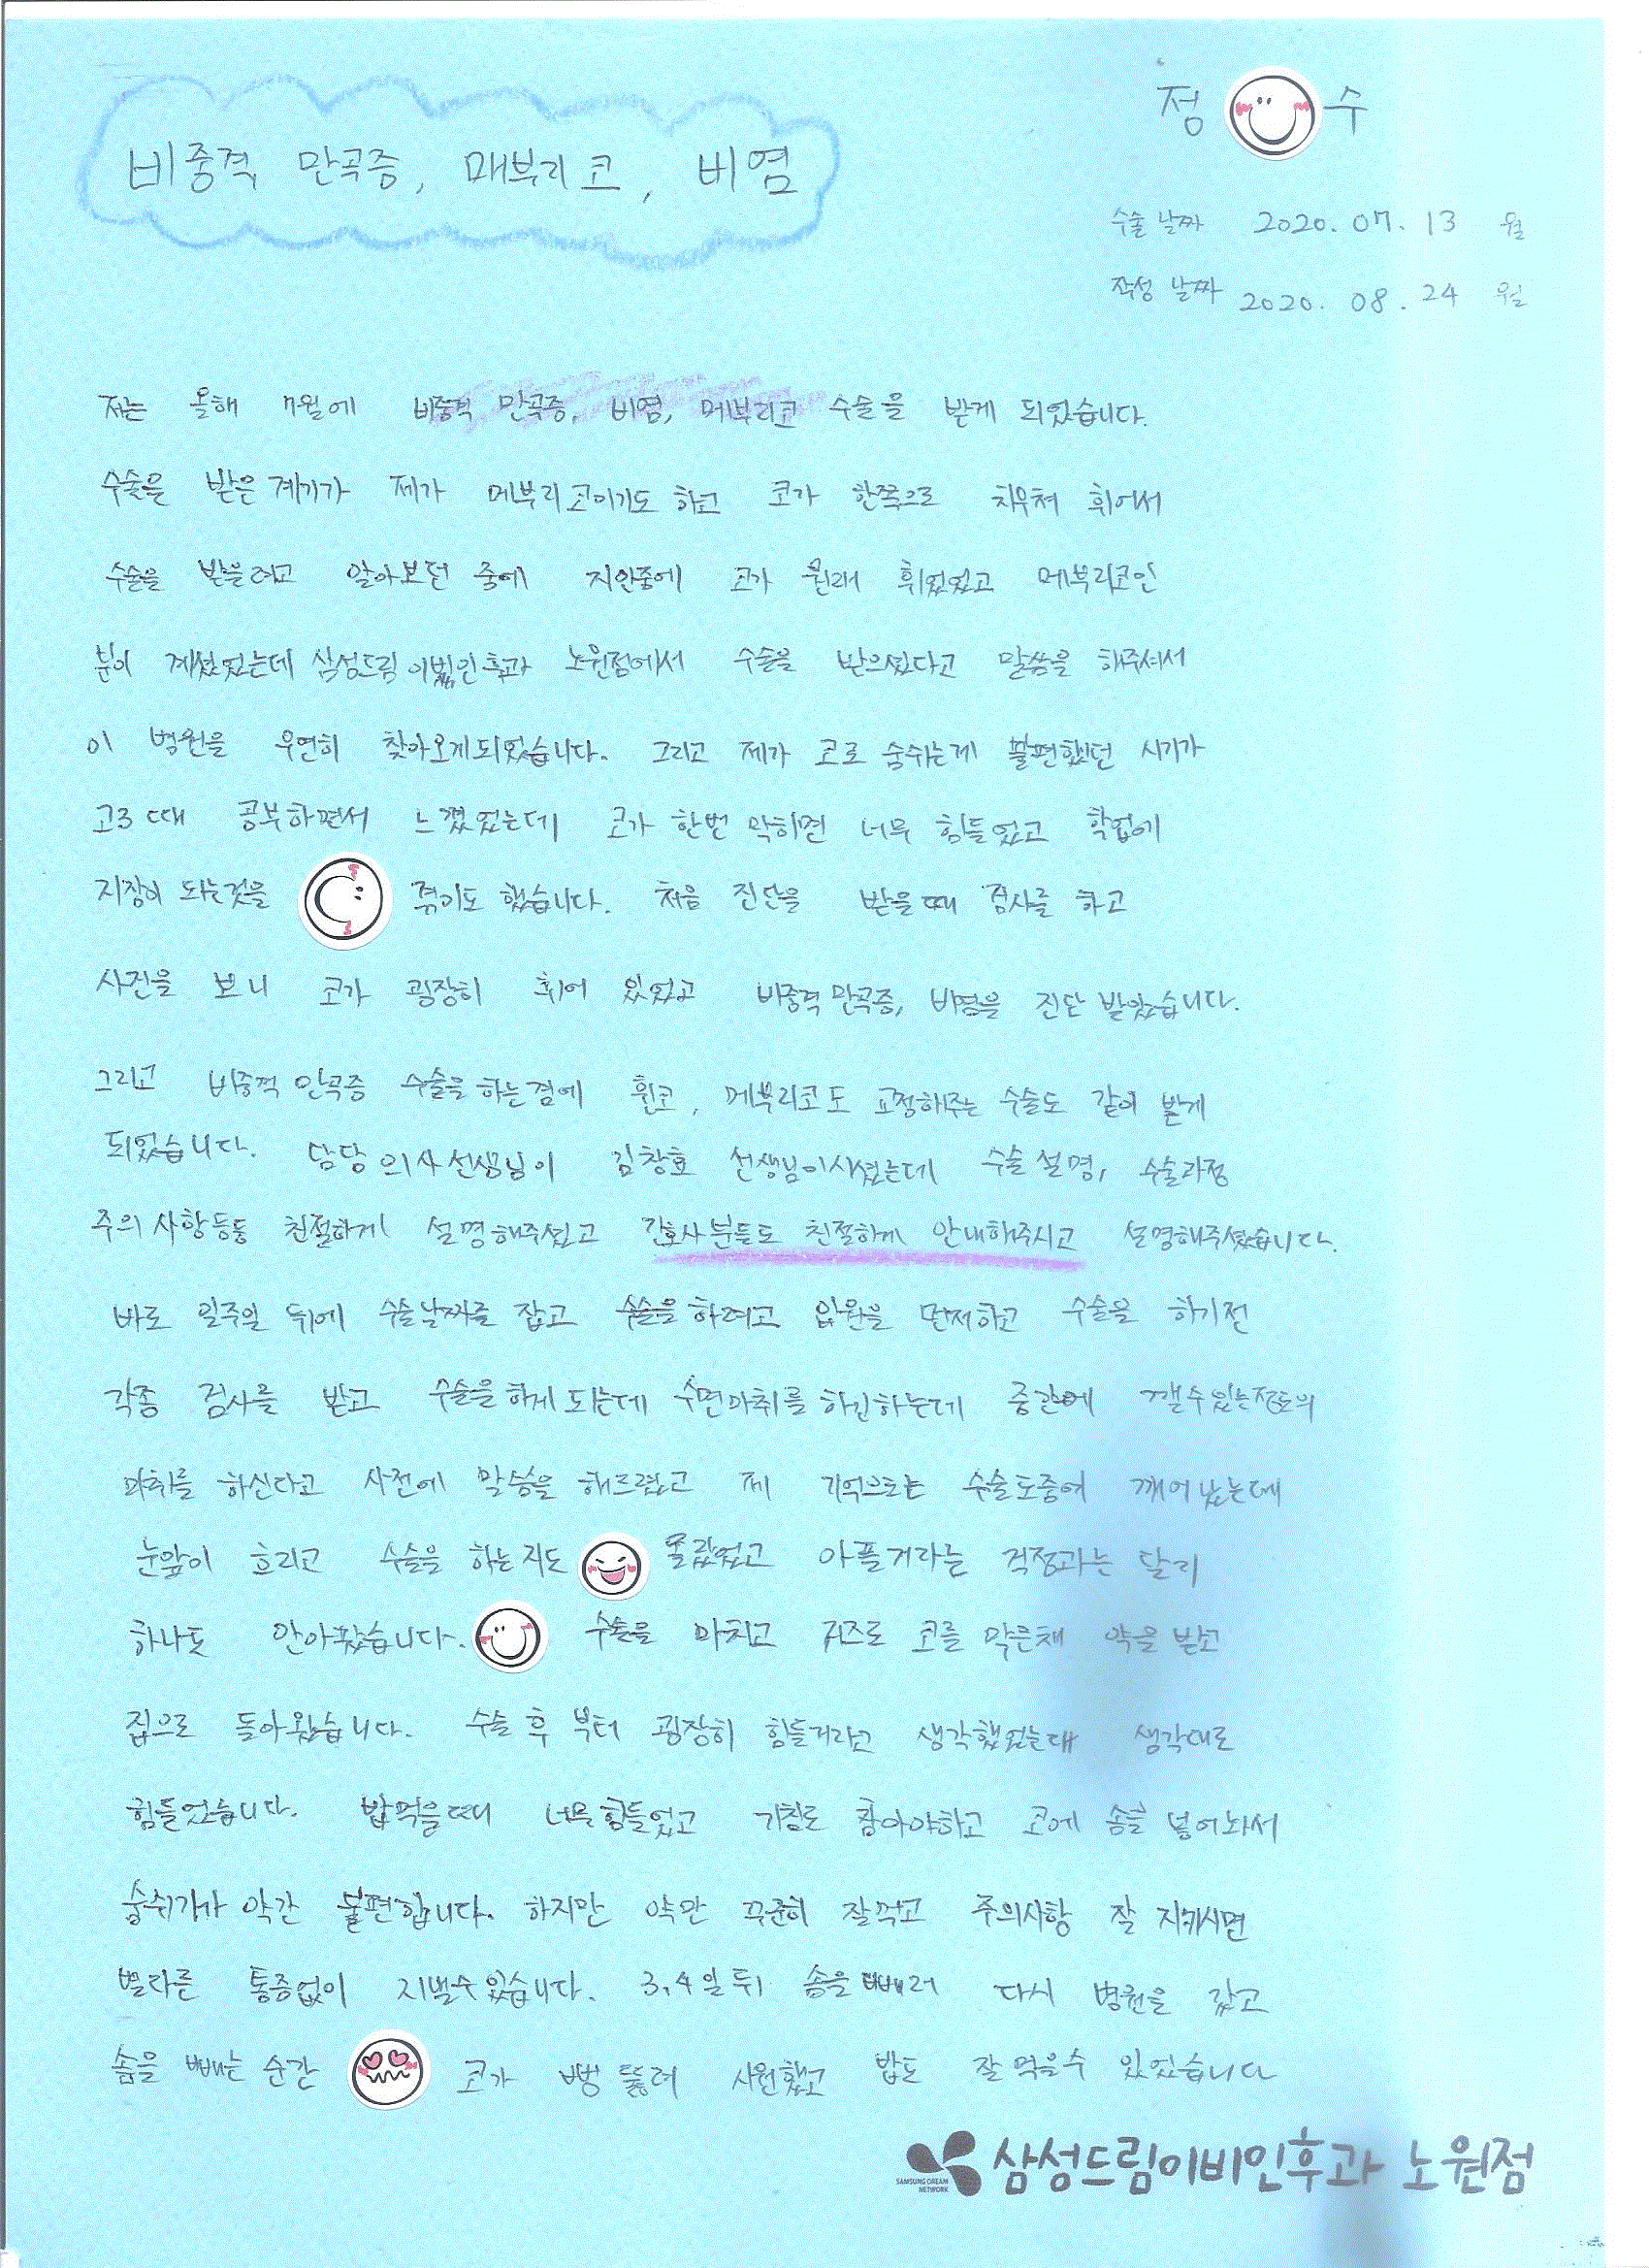 정 수
비중격 만곡증, 매부리코, 비염
수술 날짜 2020. 07. 13 월
작성 날짜 2020. 08. 24 월
저는 올해 7월에 비중격 만곡증, 비염, 메부리코 수술을 받게 되었습니다.
수술을 받은 계기가 제가 메부리코이기도 하고 코가 한쪽으로 치우쳐 휘어서
수술을 받을려고 알아보던 중에 지인중에 코가 원래 휘었었고 메부리코인
분이 계셨었는데 삼성드림이빈인후과 노원점에서 수술을 받으셨다고 말씀을 해주셔서
이 병원을 우연히 찾아오게되었습니다. 그리고 제가 코로 숨쉬는게 불편했던 시기가
고3 때 공부하면서 느꼈었는데 코가 한번 막히면 너무 힘들었고 학업에
지장이 되는것을 겪기도 했습니다. 처음 진단을 받을때 검사를 하고
사진을 보니 코가 굉장히 휘어 있었고 비중격 만곡증, 비염을 진단 받았습니다.
그리고 비중격 만곡증 수술을 하는겸에 휜코, 메부리코도 교정해주는 수술도 같이 받게
되었습니다. 담당 의사선생님이 김창효 선생님이시였는데 수술 설명, 수술과정
주의 사항등등 친절하게 설명해주셨고 간호사분들도 친절하게 안내해주시고 설명해주셨습니다.
바로 일주일 뒤에 수술날짜를 잡고 수술을 하려고 입원을 먼저하고 수술을 하기전
각종 검사를 받고 수술을 하게 되는데 수면마취를 하긴하는데 중간에 깰수있는정도의
마취를 하신다고 사전에 말씀을 해드렸고 제 기억으로는 수술도중에 깨어났는데
눈앞이 흐리고 수술을 하는지도 몰랐었고 아플거라는 걱정과는 달리
하나도 안아팠습니다. 수술을 마치고 거즈로 코를 막은채 약을 받고
집으로 돌아왔습니다. 수술 후 부터 굉장히 힘들거라고 생각했었는데 생각대로
힘들었습니다. 밥먹을때 너무힘들었고 기침도 참아야하고 코에 솜을 넣어놔서
숨쉬기가 약간 불편합니다. 하지만 약만 꾸준히 잘먹고 주의사항 잘 지키시면
별다른 통증없이 지낼수있습니다. 3,4일 뒤 솜을 빼러 다시 병원을 갔고
솜을 빼는 순간 코가 뻥 뚫려 시원했고 밥도 잘 먹을수 있었습니다
SAMSUNG DREAM NETWORK 삼성드림이비인후과 노원점